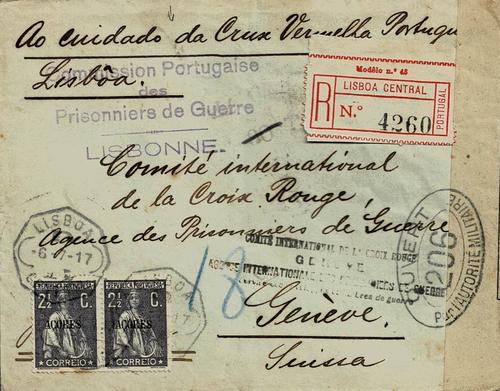 Ao cuidado da Cruz Vermelha Portugu
Lisbôa.
Commission Portugaise
des
Prisonniers de Guerre
LISBONNE.
Modêlo n.º 48
R
LISBOA CENTRAL
N.º 4260
PORTUGAL
Comité international
de la Croix Rouge,
Agence des Prisonniers de Guerre
COMITÉ INTERNATIONAL DE LA CROIX ROUGE
GENÈVE
INTERNATIONALE
de guerre
Genève.
Suissa
18
OUVERT
206
Par AUTORITÉ MILITAIRE
LISBOA
-6 -17
LISBOA
REPUBLICA PORTUGUESA
2½ C.
AÇORES
CORREIO
REPUBLICA PORTUGUESA
2½ C.
AÇORES
CORREIO